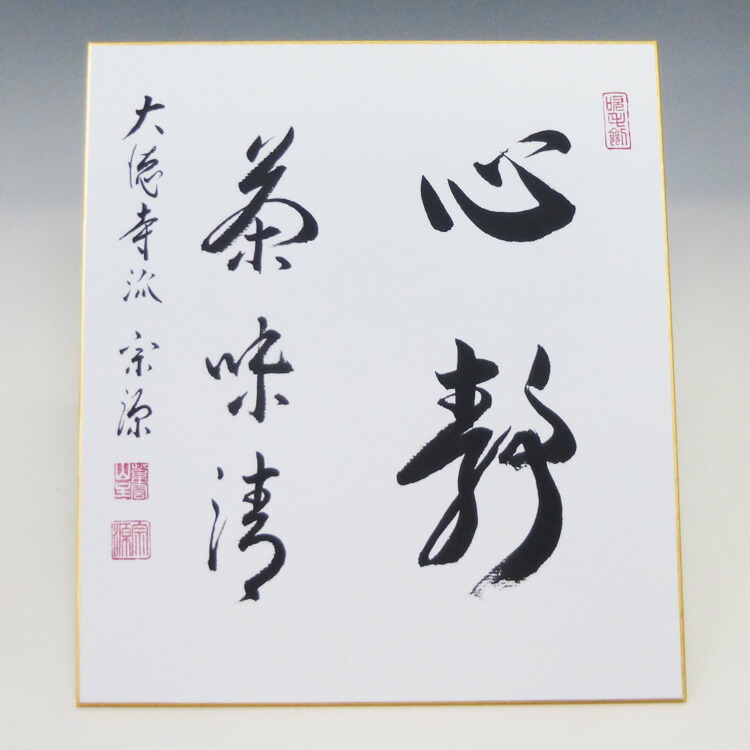 心静
茶味清
大徳寺派 宗源
宗源